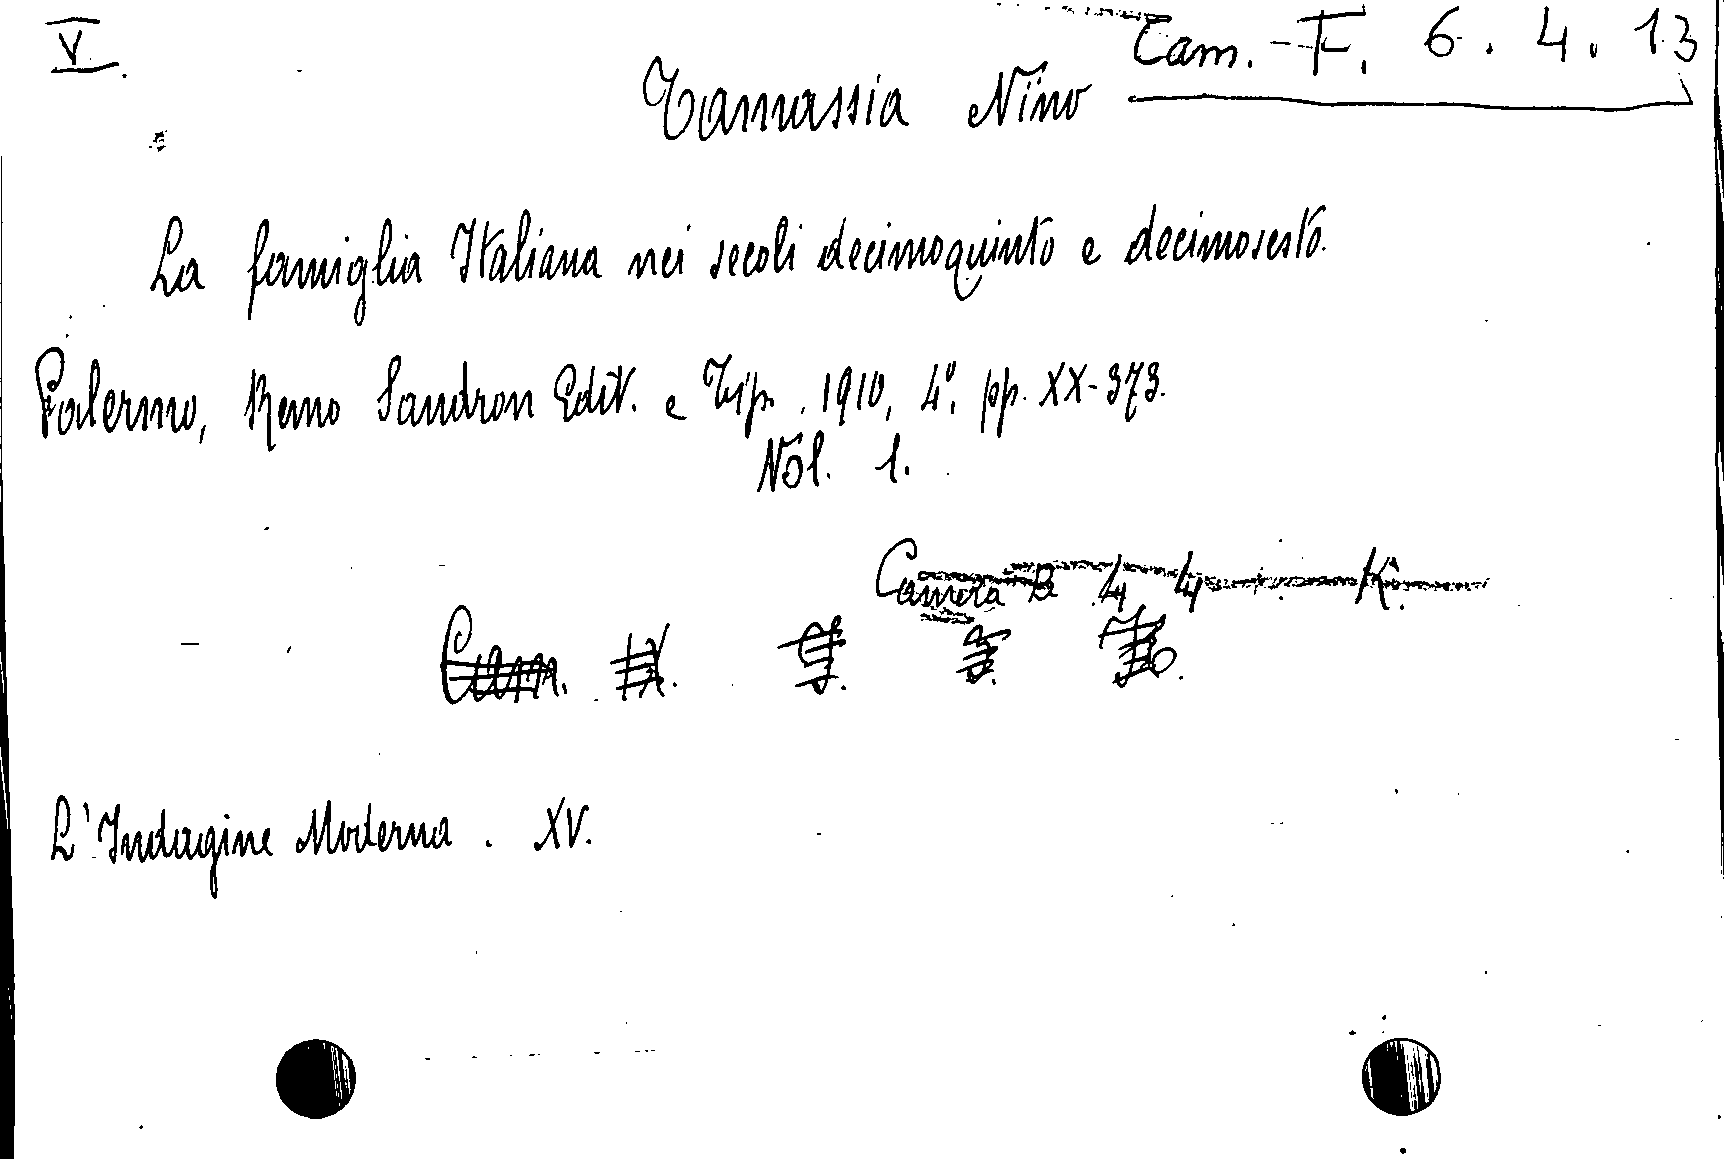 V.
Cam. F. 6. 4. 13
Tamassia Nino
La famiglia Italiana nei secoli decimoquinto e decimosesto.
Palermo, Remo Sandron Edit. e Tip. 1910, 4°. pp. XX-373.
Vol. 1.
Camera B 4 4 K.
Cam.
L'Indagine Moderna. XV.